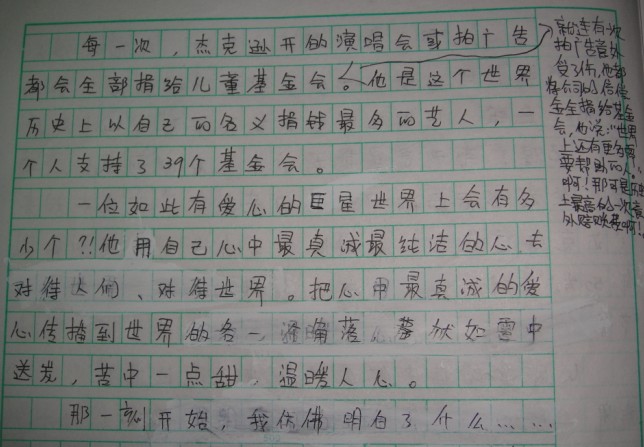 每一次，杰克逊开的演唱会或拍广告
都会全部捐给儿童基金会。他是这个世界
历史上以自己的名义捐钱最多的艺人，一
个人支持了39个基金会。
一位如此有爱心的巨星世界上会有多
少个？！他用自己心中最真诚最纯洁的心去
对待人们、对待世界。把心中最真诚的爱
心传播到世界的各一落，犹如雪中
送炭，苦中一点甜，温暖人心。
那一刻开始，我仿佛明白了什么……
就连有次
拍广告意外
受了伤，他都
将公司的赔偿
金全捐给基金
会，他说："世界
上还有更多需
要帮助的人。"
啊！那可是历史
上最高的一次意
外赔款啊！